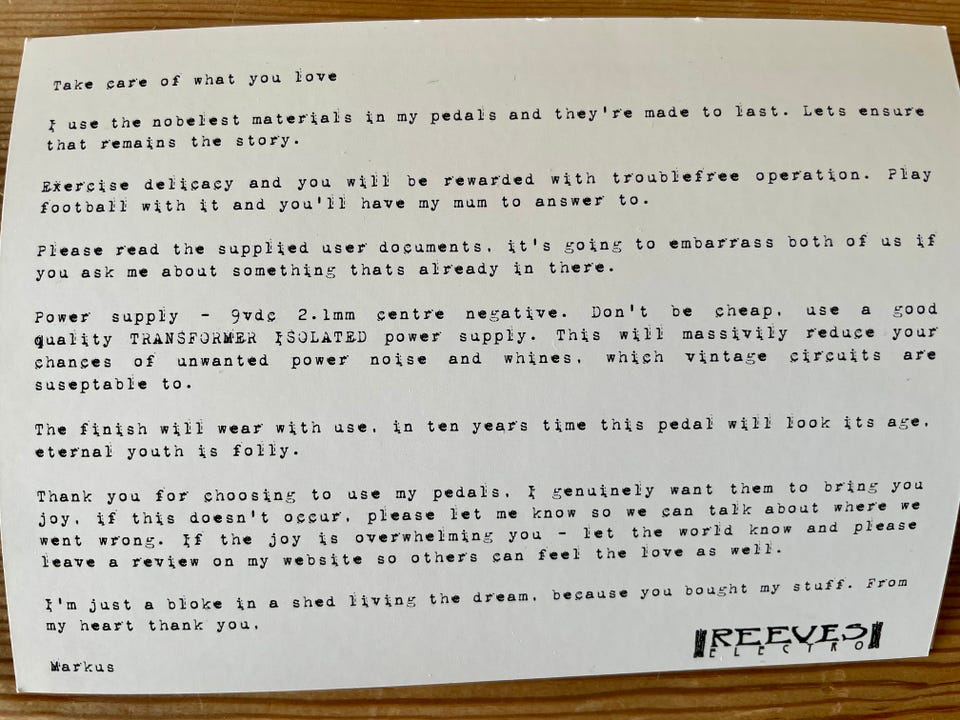 Take care of what you love
I use the nobelest materials in my pedals and they're made to last. Lets ensure
that remains the story.
Exercise delicacy and you will be rewarded with troublefree operation. Play
football with it and you'll have my mum to answer to.
Please read the supplied user documents, it's going to embarrass both of us if
you ask me about something thats already in there.
Power supply - 9vdc 2.1mm centre negative. Don't be cheap, use a good
quality TRANSFORMER ISOLATED power supply. This will massivily reduce your
chances of unwanted power noise and whines, which vintage circuits are
suseptable to.
The finish will wear with use, in ten years time this pedal will look its age,
eternal youth is folly.
Thank you for choosing to use my pedals, I genuinely want them to bring you
joy, if this doesn't occur, please let me know so we can talk about where we
went wrong. If the joy is overwhelming you - let the world know and please
leave a review on my website so others can feel the love as well.
I'm just a bloke in a shed living the dream, because you bought my stuff. From
my heart thank you,
REEVES
ELECTRO
Markus